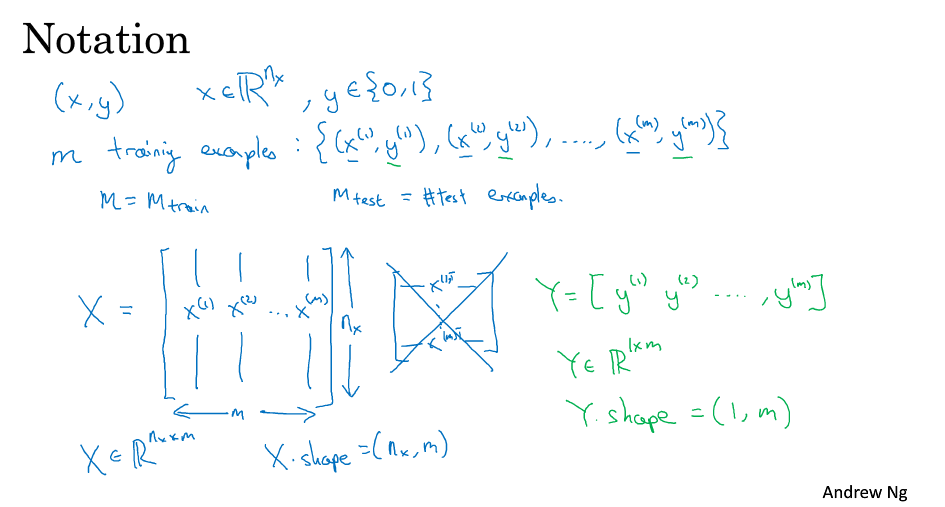 Notation
(x,y) x∈ℝ^{n_x}, y∈{0,1}
m training examples : {(x^{(1)}, y^{(1)}), (x^{(2)}, y^{(2)}), ...., (x^{(m)}, y^{(m)})}
M = M_{train} M_{test} = #test examples.
X = [ x^{(1)} x^{(2)} ... x^{(m)} ] n_x
m
x^{(1)T}
x^{(m)T}
Y = [ y^{(1)} y^{(2)} .... , y^{(m)} ]
Y ∈ ℝ^{1×m}
Y.shape = (1, m)
X ∈ ℝ^{n_x × m} X.shape = (n_x, m)
Andrew Ng